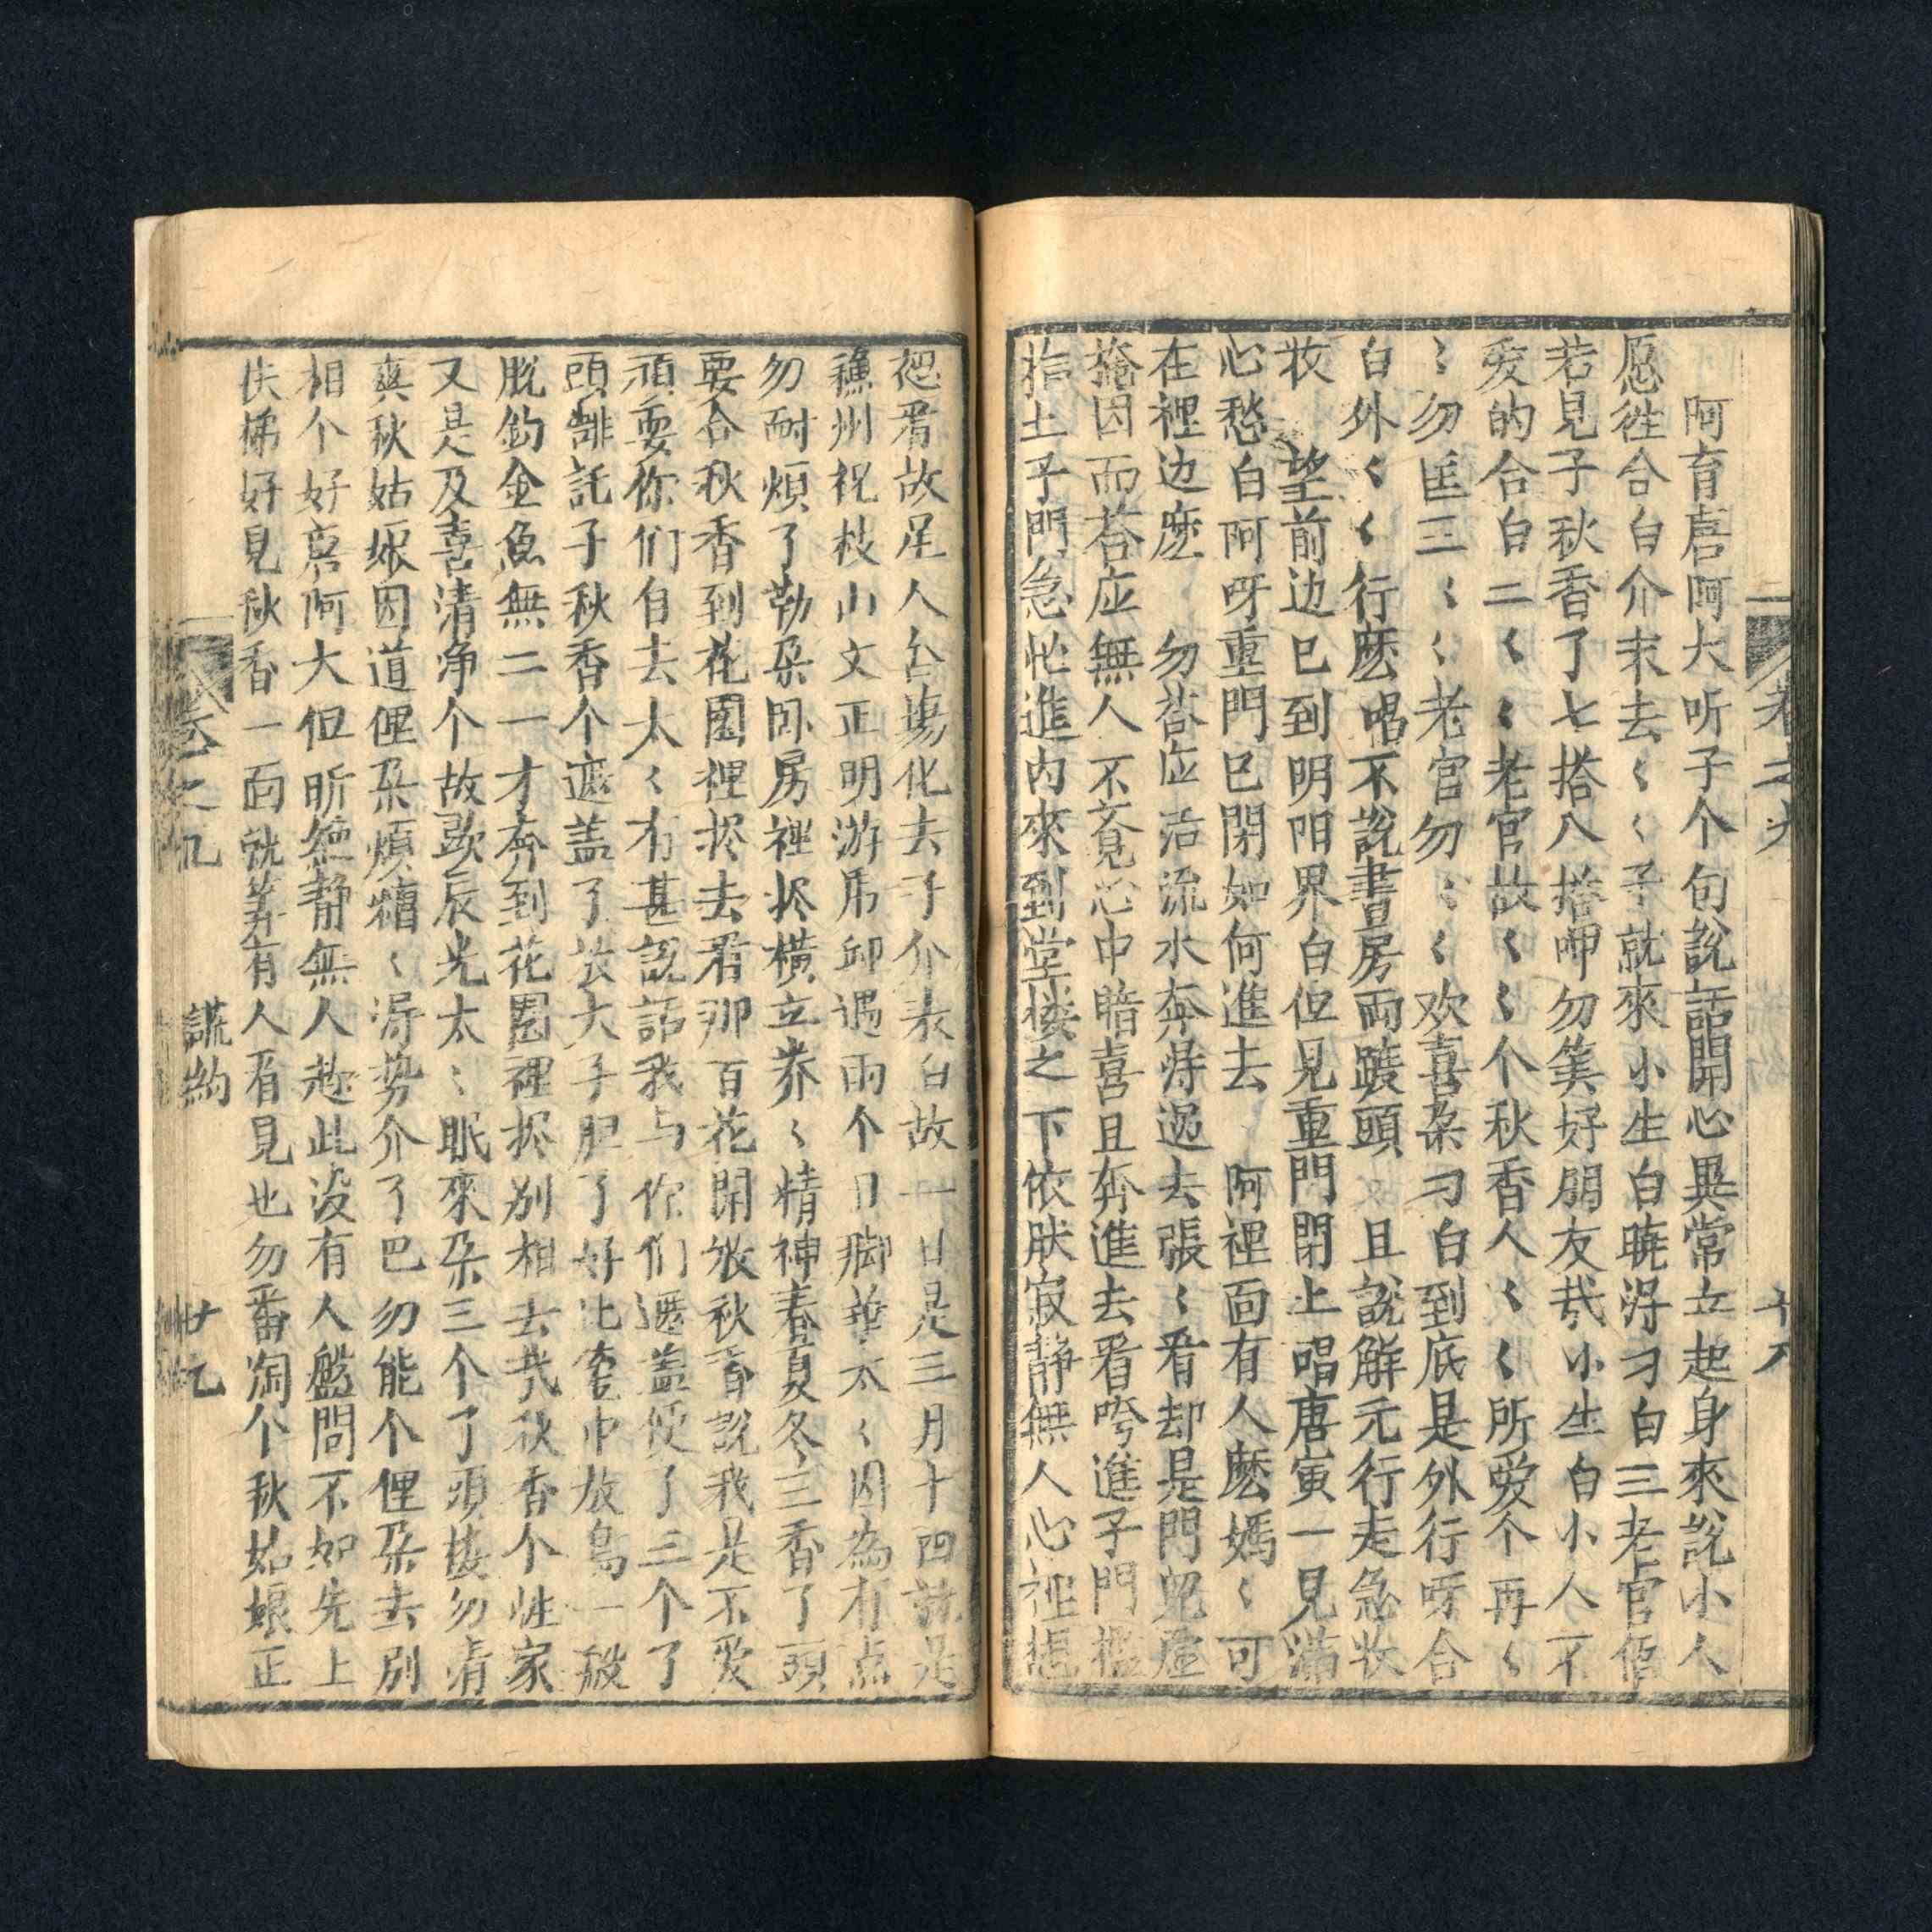 卷之九
十八
阿育唐阿大听子个句說話開心異常立起身來說小人
愿徃合白介末去〻〻子就來小生白曉淂刁白三老官
若見子秋香了七搭八搭呷勿筭好朋友㢤小生白小人不
爱的合白二〻〻老官故〻〻个秋香人〻〻所爱个再〻
〻勿匡三〻〻老官勿〻〻欢喜朶刁白到底是外行呀合
白外〻〻行麽唱不說書房兩䟦頭又且說觧元行走急忙
妆望前边已到明阳界白但見重門閉上唱唐寅一見滿
心愁白阿呀重門已閉如何進去阿裡面有人麽媽〻可
在裡边麽勿荅应活流水奔淂過去張〻看却是門兒虛
掩因而荅应無人不竟心中暗喜且奔進去看咵進子門檻
指上子門急忙進內來到堂楼之下依肰寂静無人心裡想
故是人
化去子介表白故一日是三月十四
州祝枝山文正明游虎邱遇雨个日脚華太〻因為有点
勿耐煩了勒朶卧房裡𢪶橫立养〻精神春夏冬三香了頭
要合秋香到花園裡𢪶去看那百花開放秋香說我是不爱
頑耍你们自去太〻有甚說話我与你们遮盖便了三个了
頭
託子秋香个遮盖了放大子胆了好比
中放鳥一般
脱鈎金魚無二一才奔到花園裡𢪶别相去哉秋香个性家
又是及喜清净个故歇辰光太〻眠來朶三个了頭接勿着
爽秋姑娘因道俚朶煩
淂势介了巴勿能个俚朶去别
相个好唐阿大但听
静無人趂此沒有人盤問不如先上
扶梯好見秋香一面就筭有人看見也勿番淘个秋姑娘正
卷之九
謊約
十九